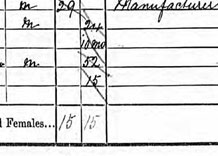 m 29 Manufacturer
m 24
10 mo
m 52
15
Females... 15 15